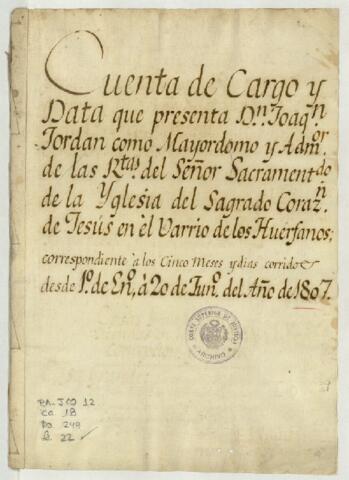 Cuenta de Cargo y
Data que presenta Dn. Joaqn.
Jordan como Mayordomo y Admor.
de las Rtas. del Señor Sacramentdo.
de la Yglesia del Sagrado Corazn.
de Jesús en el Varrio de los Huerfanos;
correspondiente à los Cinco Meses y dias corridos
desde 1º. de Enº. à 20 de Junº. del Año de 1807.
CORTE SUPERIOR DE JUSTICIA
ARCHIVO
PA-JCO 12
Ca 18
Do 249
f. 22